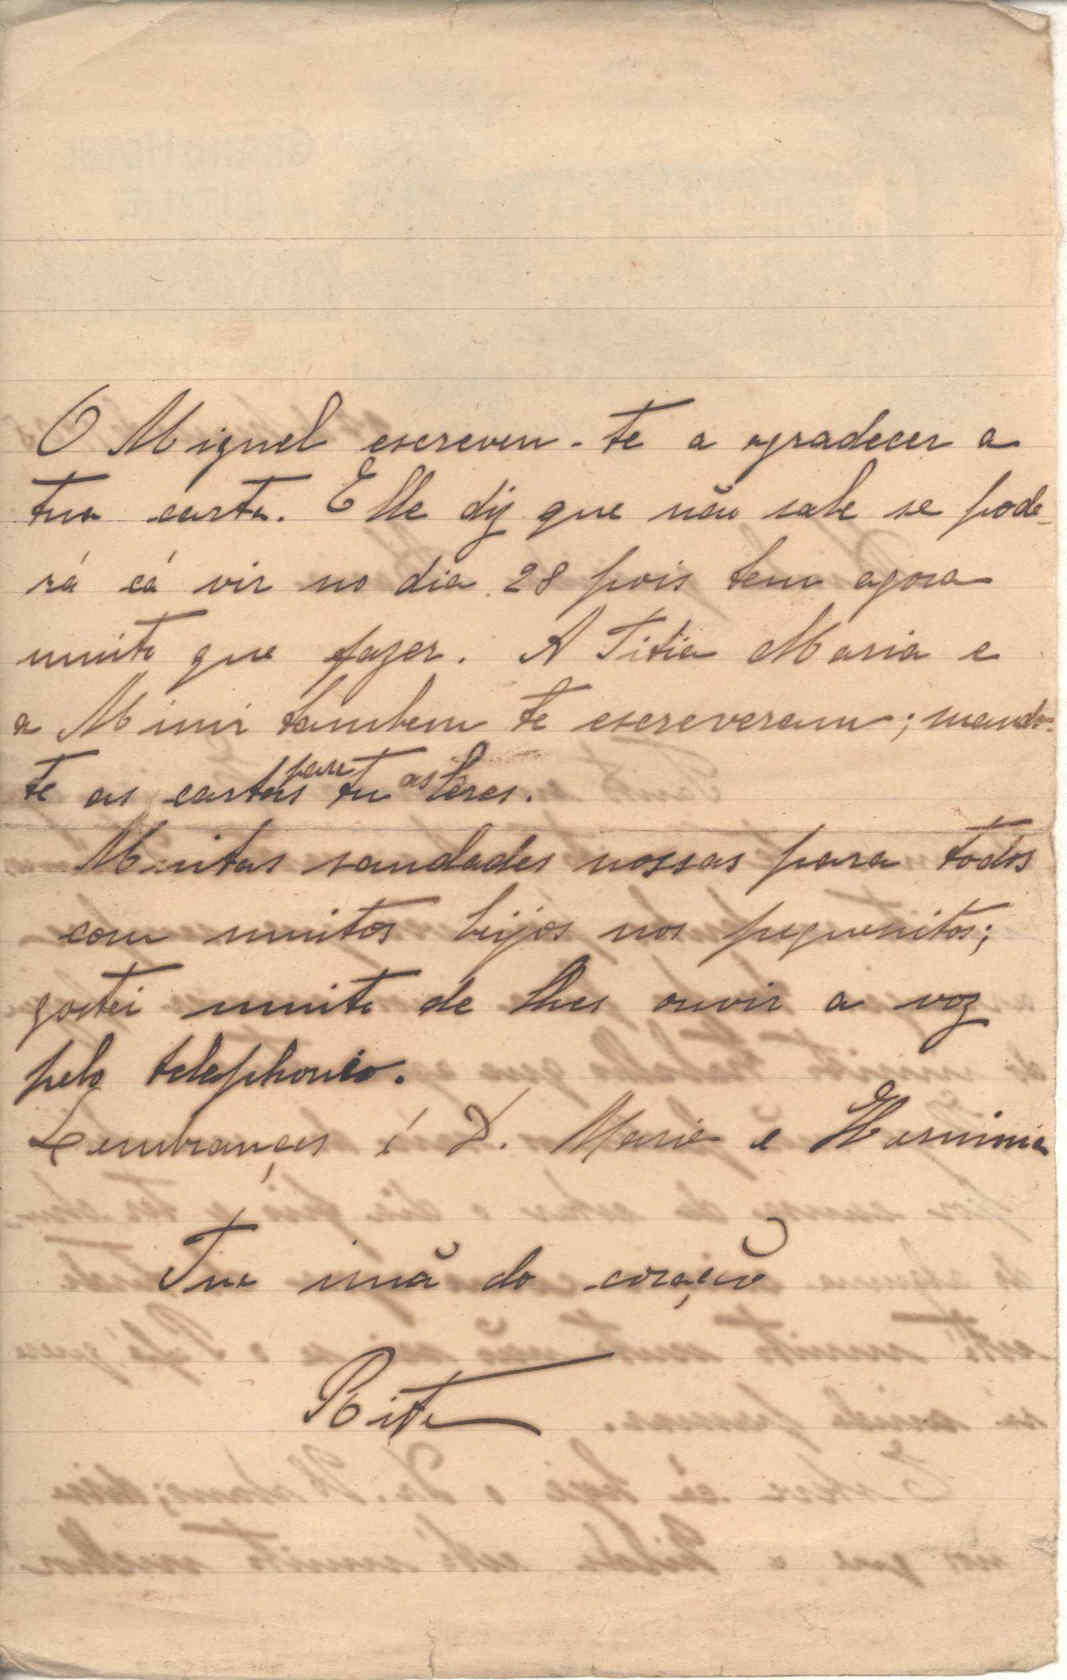 O Miguel escreveu-te a agradecer a
tua carta. Elle diz que não sabe se pode-
rá cá vir no dia 28 pois tem agora
muito que fazer. A Titia Maria e
a Mimi tambem te escreveram; mando-
te as cartas para tu as leres.
Muitas saudades nossas para todos
com muitos bijos nos pequenitos;
gostei muito de lhes ouvir a voz
pelo telephonio.
Lembranças á D. Maria e Herminia
Tua irmã do coração
Rita